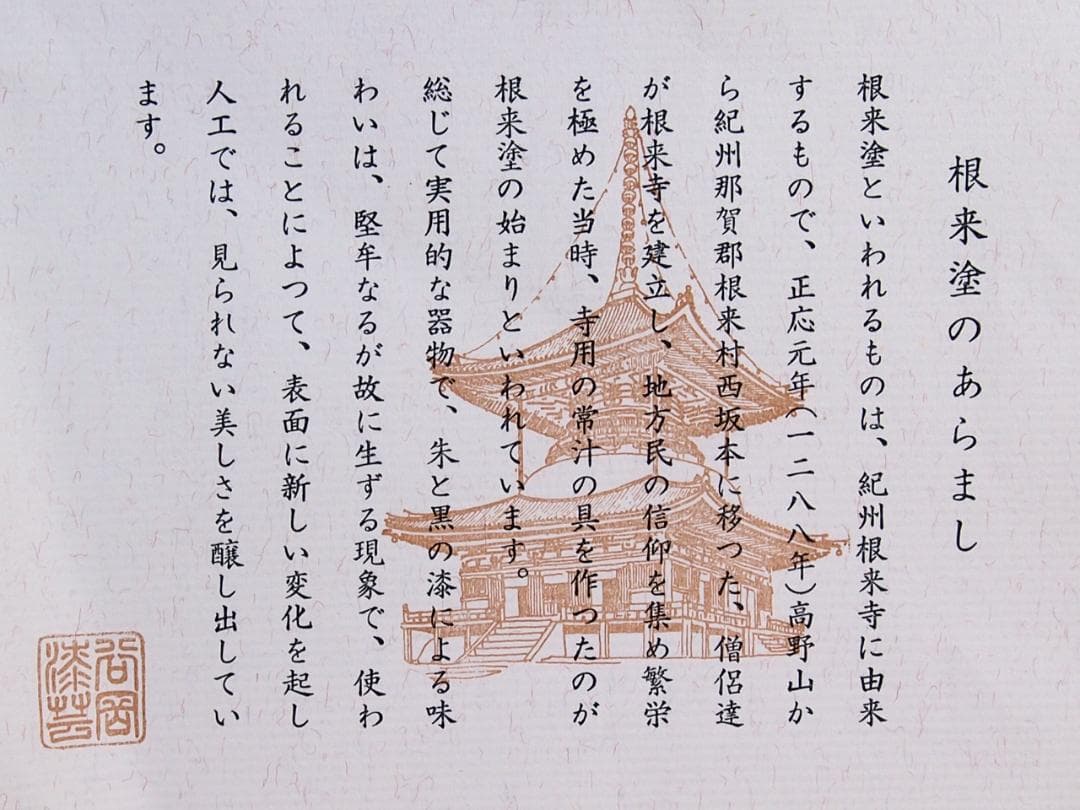 根来塗のあらまし
根来塗といわれるものは、紀州根来寺に由来
するもので、正応元年(一二八八年)高野山か
ら紀州那賀郡根来村西坂本に移つた、僧侶達
が根来寺を建立し、地方民の信仰を集め繁栄
を極めた当時、寺用の常汁の具を作つたのが
根来塗の始まりといわれています。
総じて実用的な器物で、朱と黒の漆による味
わいは、堅牢なるが故に生ずる現象で、使わ
れることによつて、表面に新しい変化を起し
人工では、見られない美しさを醸し出してい
ます。
谷岡
漆芸